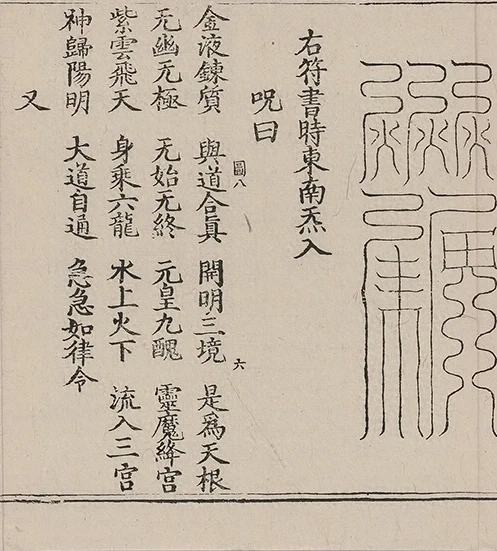 右符書時東南炁入
呪曰
金液鍊質 與道合眞 開明三境 是爲天根
圖八 六
无幽无極 无始无終 元皇九醜 靈魔絳宮
紫雲飛天 身乘六龍 水上火下 流入三宮
神歸陽明 大道自通 急急如律令
又